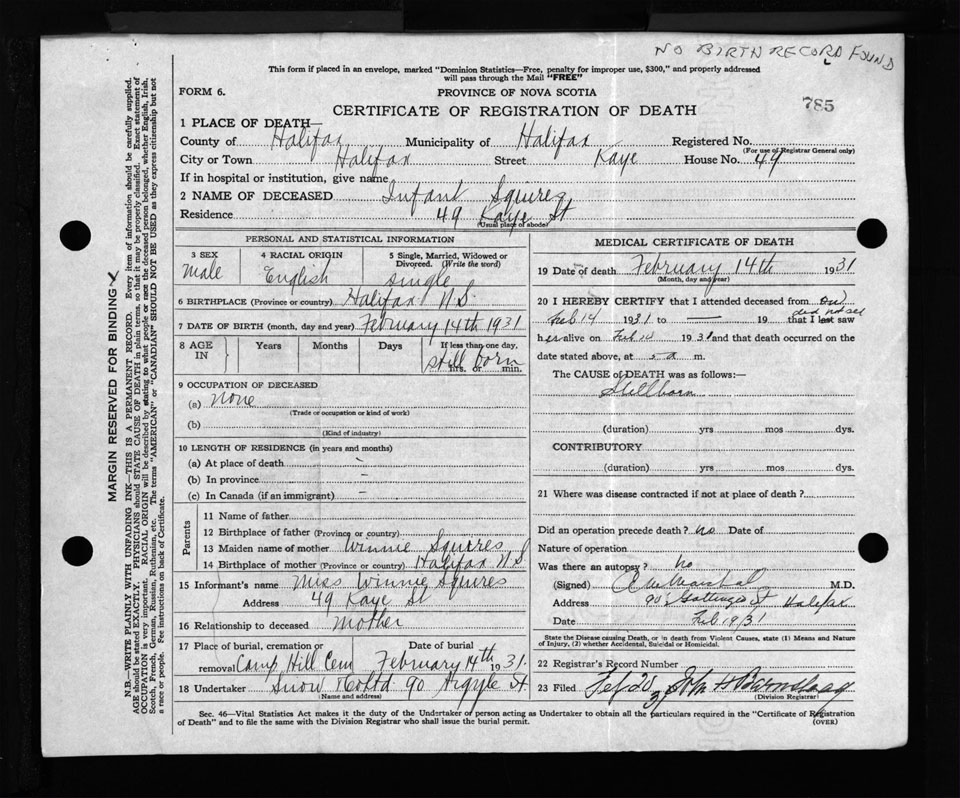 NO BIRTH RECORD FOUND
This form if placed in an envelope, marked "Dominion Statistics—Free, penalty for improper use, $300," and properly addressed
will pass through the Mail "FREE"
FORM 6.
PROVINCE OF NOVA SCOTIA
785
CERTIFICATE OF REGISTRATION OF DEATH
1 PLACE OF DEATH—
County of Halifax Municipality of Halifax Registered No.
(For use of Registrar General only)
City or Town Halifax Street Kaye House No. 49
If in hospital or institution, give name
2 NAME OF DECEASED Infant Squires
Residence 49 Kaye St
(Usual place of abode)
PERSONAL AND STATISTICAL INFORMATION
3 SEX 4 RACIAL ORIGIN 5 Single, Married, Widowed or
Divorced. (Write the word)
male English single
6 BIRTHPLACE (Province or country) Halifax N.S.
7 DATE OF BIRTH (month, day and year) February 14th 1931
8 AGE IN Years Months Days If less than one day,
still born
hrs. or min.
9 OCCUPATION OF DECEASED
(a) None
(Trade or occupation or kind of work)
(b)
(Kind of industry)
10 LENGTH OF RESIDENCE (in years and months)
(a) At place of death –
(b) In province –
(c) In Canada (if an immigrant) –
Parents
11 Name of father
12 Birthplace of father (Province or country)
13 Maiden name of mother Winnie Squires
14 Birthplace of mother (Province or country) Halifax N S
15 Informant's name Miss Winnie Squires
Address 49 Kaye St
16 Relationship to deceased Mother
17 Place of burial, cremation or Date of burial
removal Camp Hill Cem February 14th 1931.
18 Undertaker Snow Co Ltd 90 Argyle St
(Name and address)
MEDICAL CERTIFICATE OF DEATH
19 Date of death February 14th 1931
(Month, day and year)
20 I HEREBY CERTIFY that I attended deceased from on
did not see
Feb 14 1931 to — 19 that I last saw
h alive on Feb 1931 and that death occurred on the
date stated above, at a m.
The CAUSE of DEATH was as follows:—
Stillborn
(duration) yrs mos dys.
CONTRIBUTORY
(duration) yrs mos dys.
21 Where was disease contracted if not at place of death?
Did an operation precede death? no Date of
Nature of operation
Was there an autopsy? No
(Signed) M.D.
Address 90 Gottingen St Halifax
Date Feb 19/31
State the Disease causing Death, or in death from Violent Causes, state (1) Means and Nature
of Injury, (2) whether Accidental, Suicidal or Homicidal.
22 Registrar's Record Number
23 Filed Feb 20 31 John H
(Division Registrar)
Sec. 46—Vital Statistics Act makes it the duty of the Undertaker or person acting as Undertaker to obtain all the particulars required in the "Certificate of Registration
of Death" and to file the same with the Division Registrar who shall issue the burial permit.
(OVER)
MARGIN RESERVED FOR BINDING
N.B.—WRITE PLAINLY WITH UNFADING INK—THIS IS A PERMANENT RECORD. Every item of information should be carefully supplied.
AGE should be stated EXACTLY. PHYSICIANS should STATE CAUSE OF DEATH in plain terms, so that it may be properly classified. Exact statement of
OCCUPATION is very important. RACIAL ORIGIN will be described by stating to what people or race the deceased person belonged, whether English, Irish,
Scotch, French, German, Russian, Ruthenian, etc. The terms "AMERICAN" or "CANADIAN" SHOULD NOT BE USED as they express citizenship but not
a race or people. Fee instructions on back of Certificate.